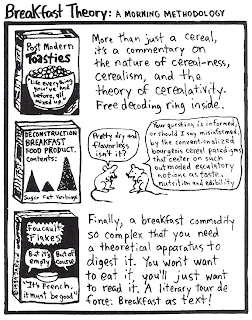 Breakfast Theory: A MORNING METHODOLOGY
Post Modern
Toasties
"Like everything
you've had
before, all
mixed up"
More than just a cereal,
it's a commentary on
the nature of cereal-ness,
cerealism, and the
theory of cerealativity.
Free decoding ring inside.
DECONSTRUCTION
BREAKFAST
FOOD PRODUCT.
Contents:
Sugar Fat Verbiage
Pretty dry and
flavorless
isn't it?
Your question is informed,
or should I say misinformed,
by the conventionalized
bourgeois cereal paradigms
that center on such
outmoded escalatory
notions as taste,
nutrition and edibility.
Foucault
Flakes
But it's
empty
But of
course
"It's French,
it must be good"
Finally, a breakfast commodity
so complex that you need
a theoretical apparatus to
digest it. You won't want
to eat it, you'll just want
to read it. A literary tour de
force: Breakfast as text!